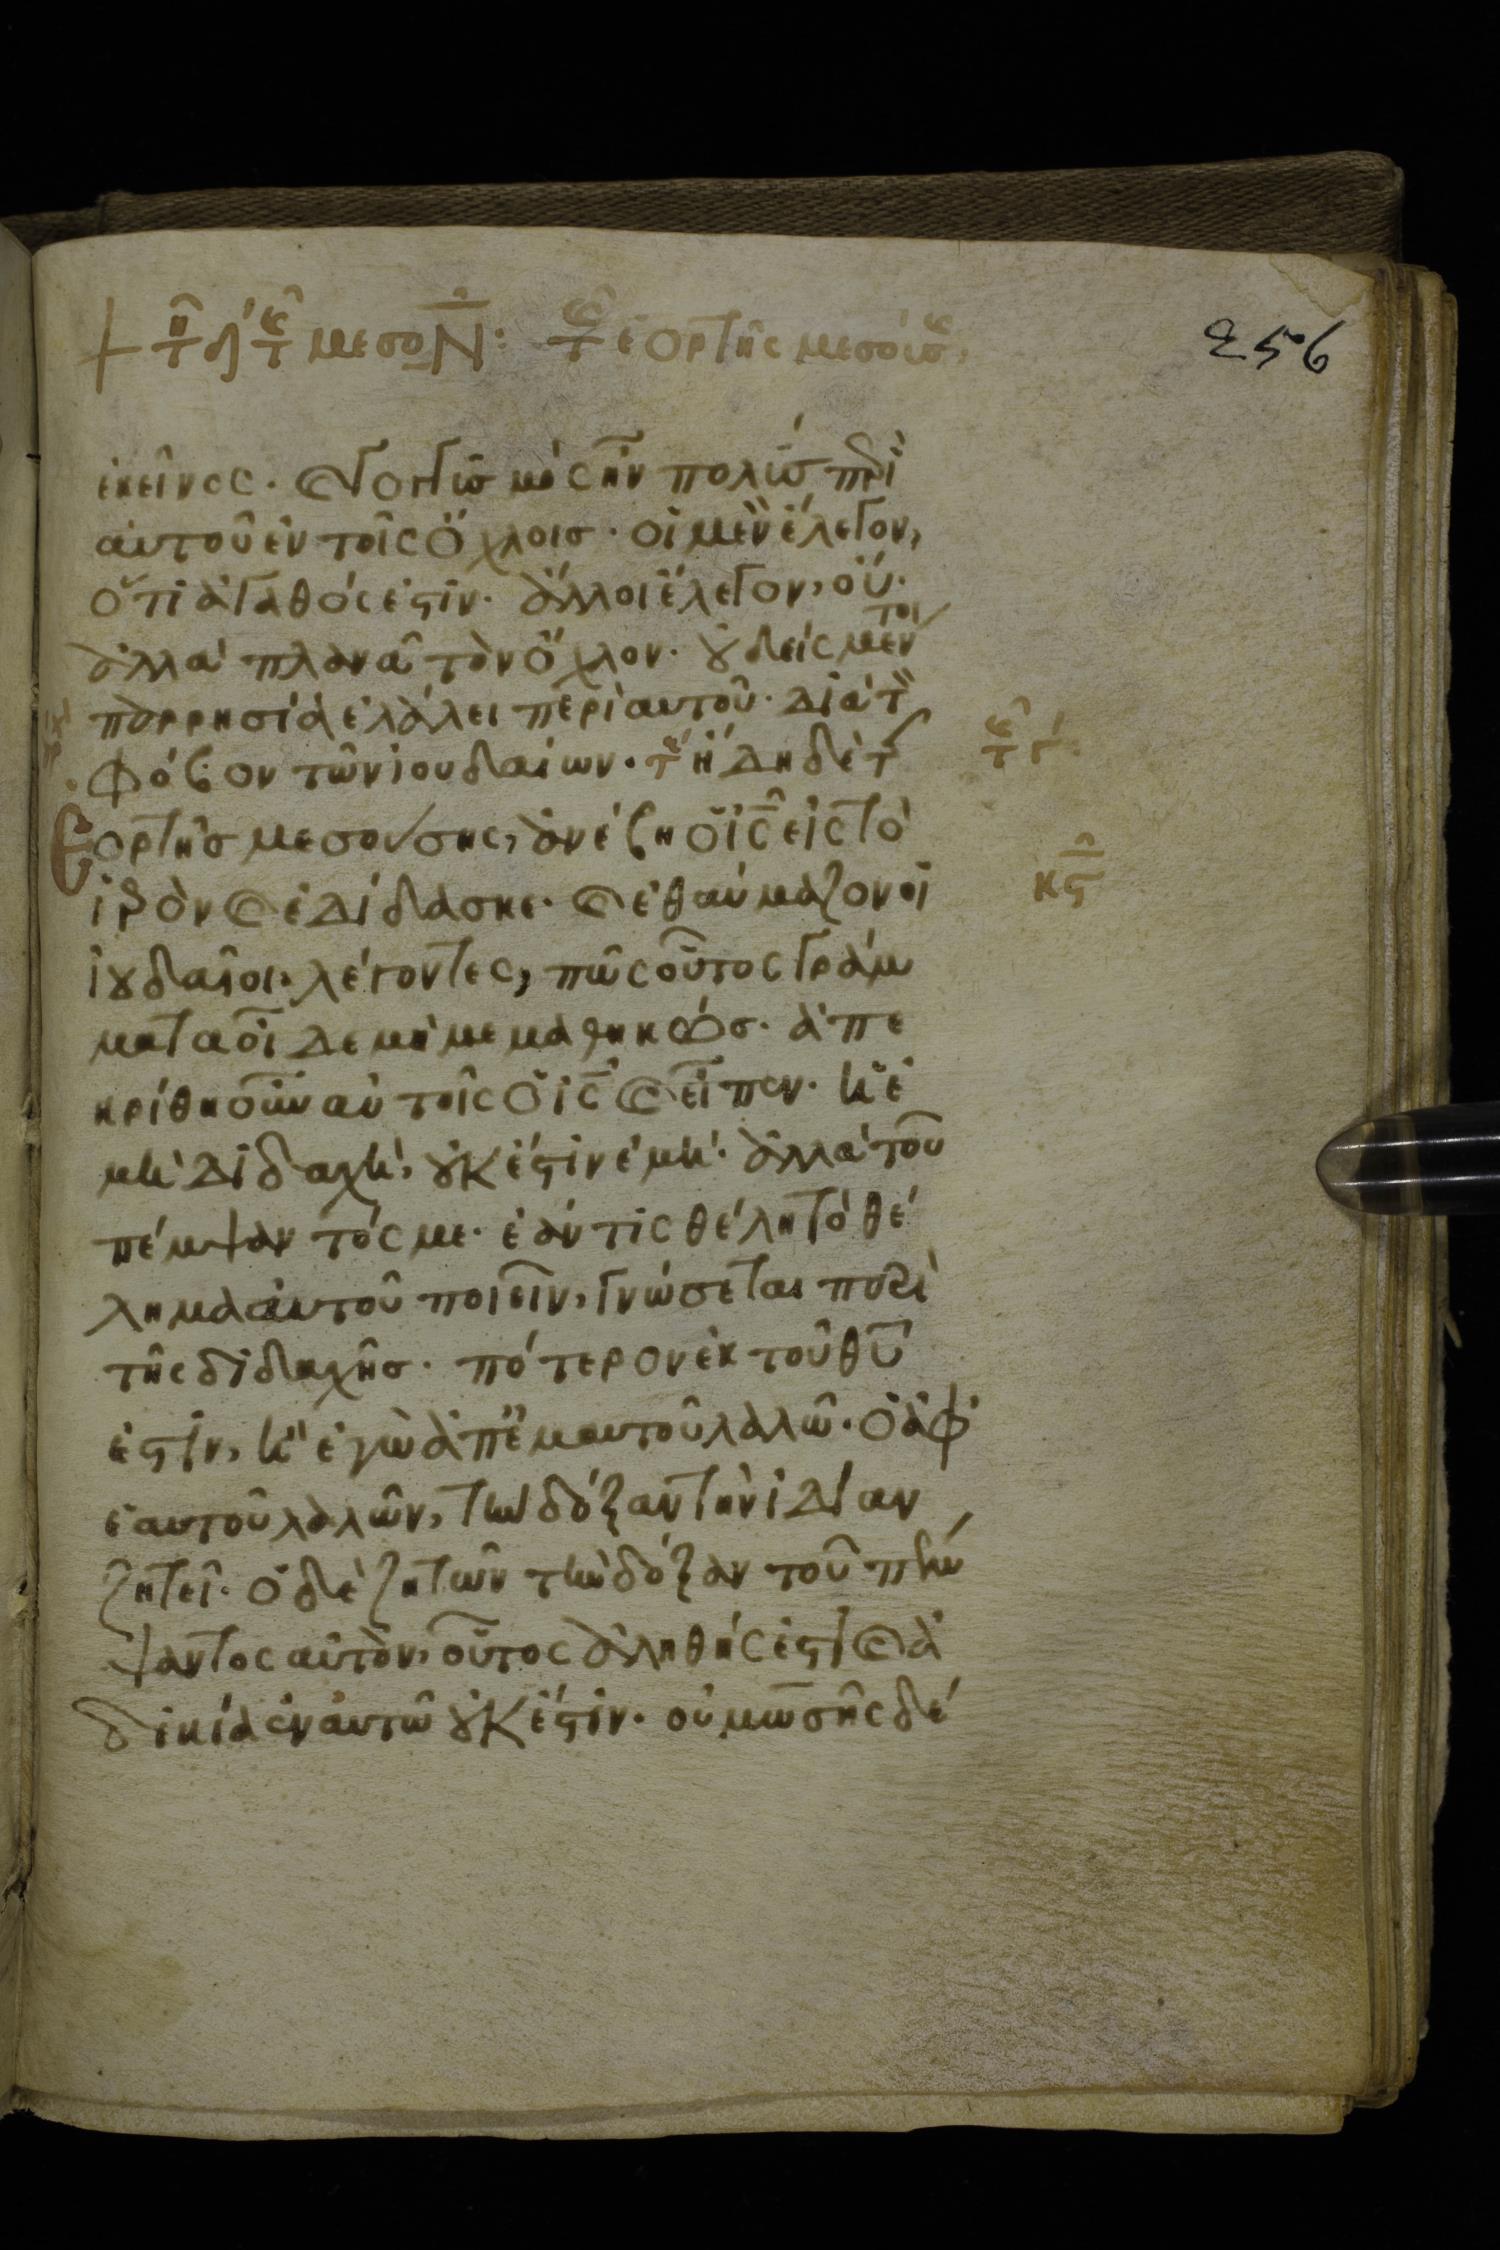 256
ἐκεῖνος. καὶ γογγυσμὸς ἦν πολὺς περὶ
αὐτοῦ ἐν τοῖς ὄχλοις. οἱ μὲν ἔλεγον,
ὅτι ἀγαθός ἐστιν. ἄλλοι ἔλεγον, οὔ.
ἀλλὰ πλανᾶ τὸν ὄχλον. οὐδεὶς μέντοι
παρρησία ἐλάλει περὶ αὐτοῦ. διὰ τὸν
φόβον τῶν ἰουδαίων. ἤδη δὲ τῆς
ἑορτῆς μεσούσης, ἀνέβη ὁ ις εἰς τὸ
ἱερὸν καὶ ἐδίδασκε. καὶ ἐθαύμαζον οἱ
ἰουδαῖοι λέγοντες, πῶς οὗτος γράμ
ματα οἶδε μὴ μεμαθηκώς. ἀπε
κρίθη οὖν αὐτοῖς ὁ ις καὶ εἶπεν. ἡ ἐ
μὴ διδαχὴ, οὐκ ἔστιν ἐμὴ. ἀλλὰ τοῦ
πέμψαντός με. ἐάν τις θέλη τὸ θέ
λημα αὐτοῦ ποιεῖν, γνώσεται περὶ
τῆς διδαχῆς. πότερον ἐκ τοῦ θυ
ἐστιν, ἢ ἐγὼ ἀπ' ἐμαυτοῦ λαλῶ. ὁ ἀφ'
ἑαυτοῦ λαλῶν, τὴν δόξαν τὴν ἰδίαν
ζητεῖ. ὁ δὲ ζητῶν τὴν δόξαν τοῦ πέμ
ψαντος αὐτὸν, οὗτος ἀληθής ἐστι καὶ ἀ
δικία ἐν αὐτῶ οὐκ ἔστιν. οὐ μωσῆς δέ